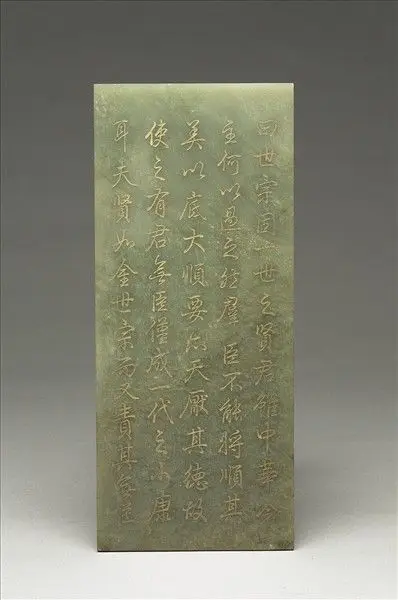 曰世宗固一世之賢君雖中華令
主何以過之然羣臣不能將順其
美以底大順要亦天厭其德故
使之有君無臣僅成一代之小康
耳夫賢如金世宗而又責其無臣